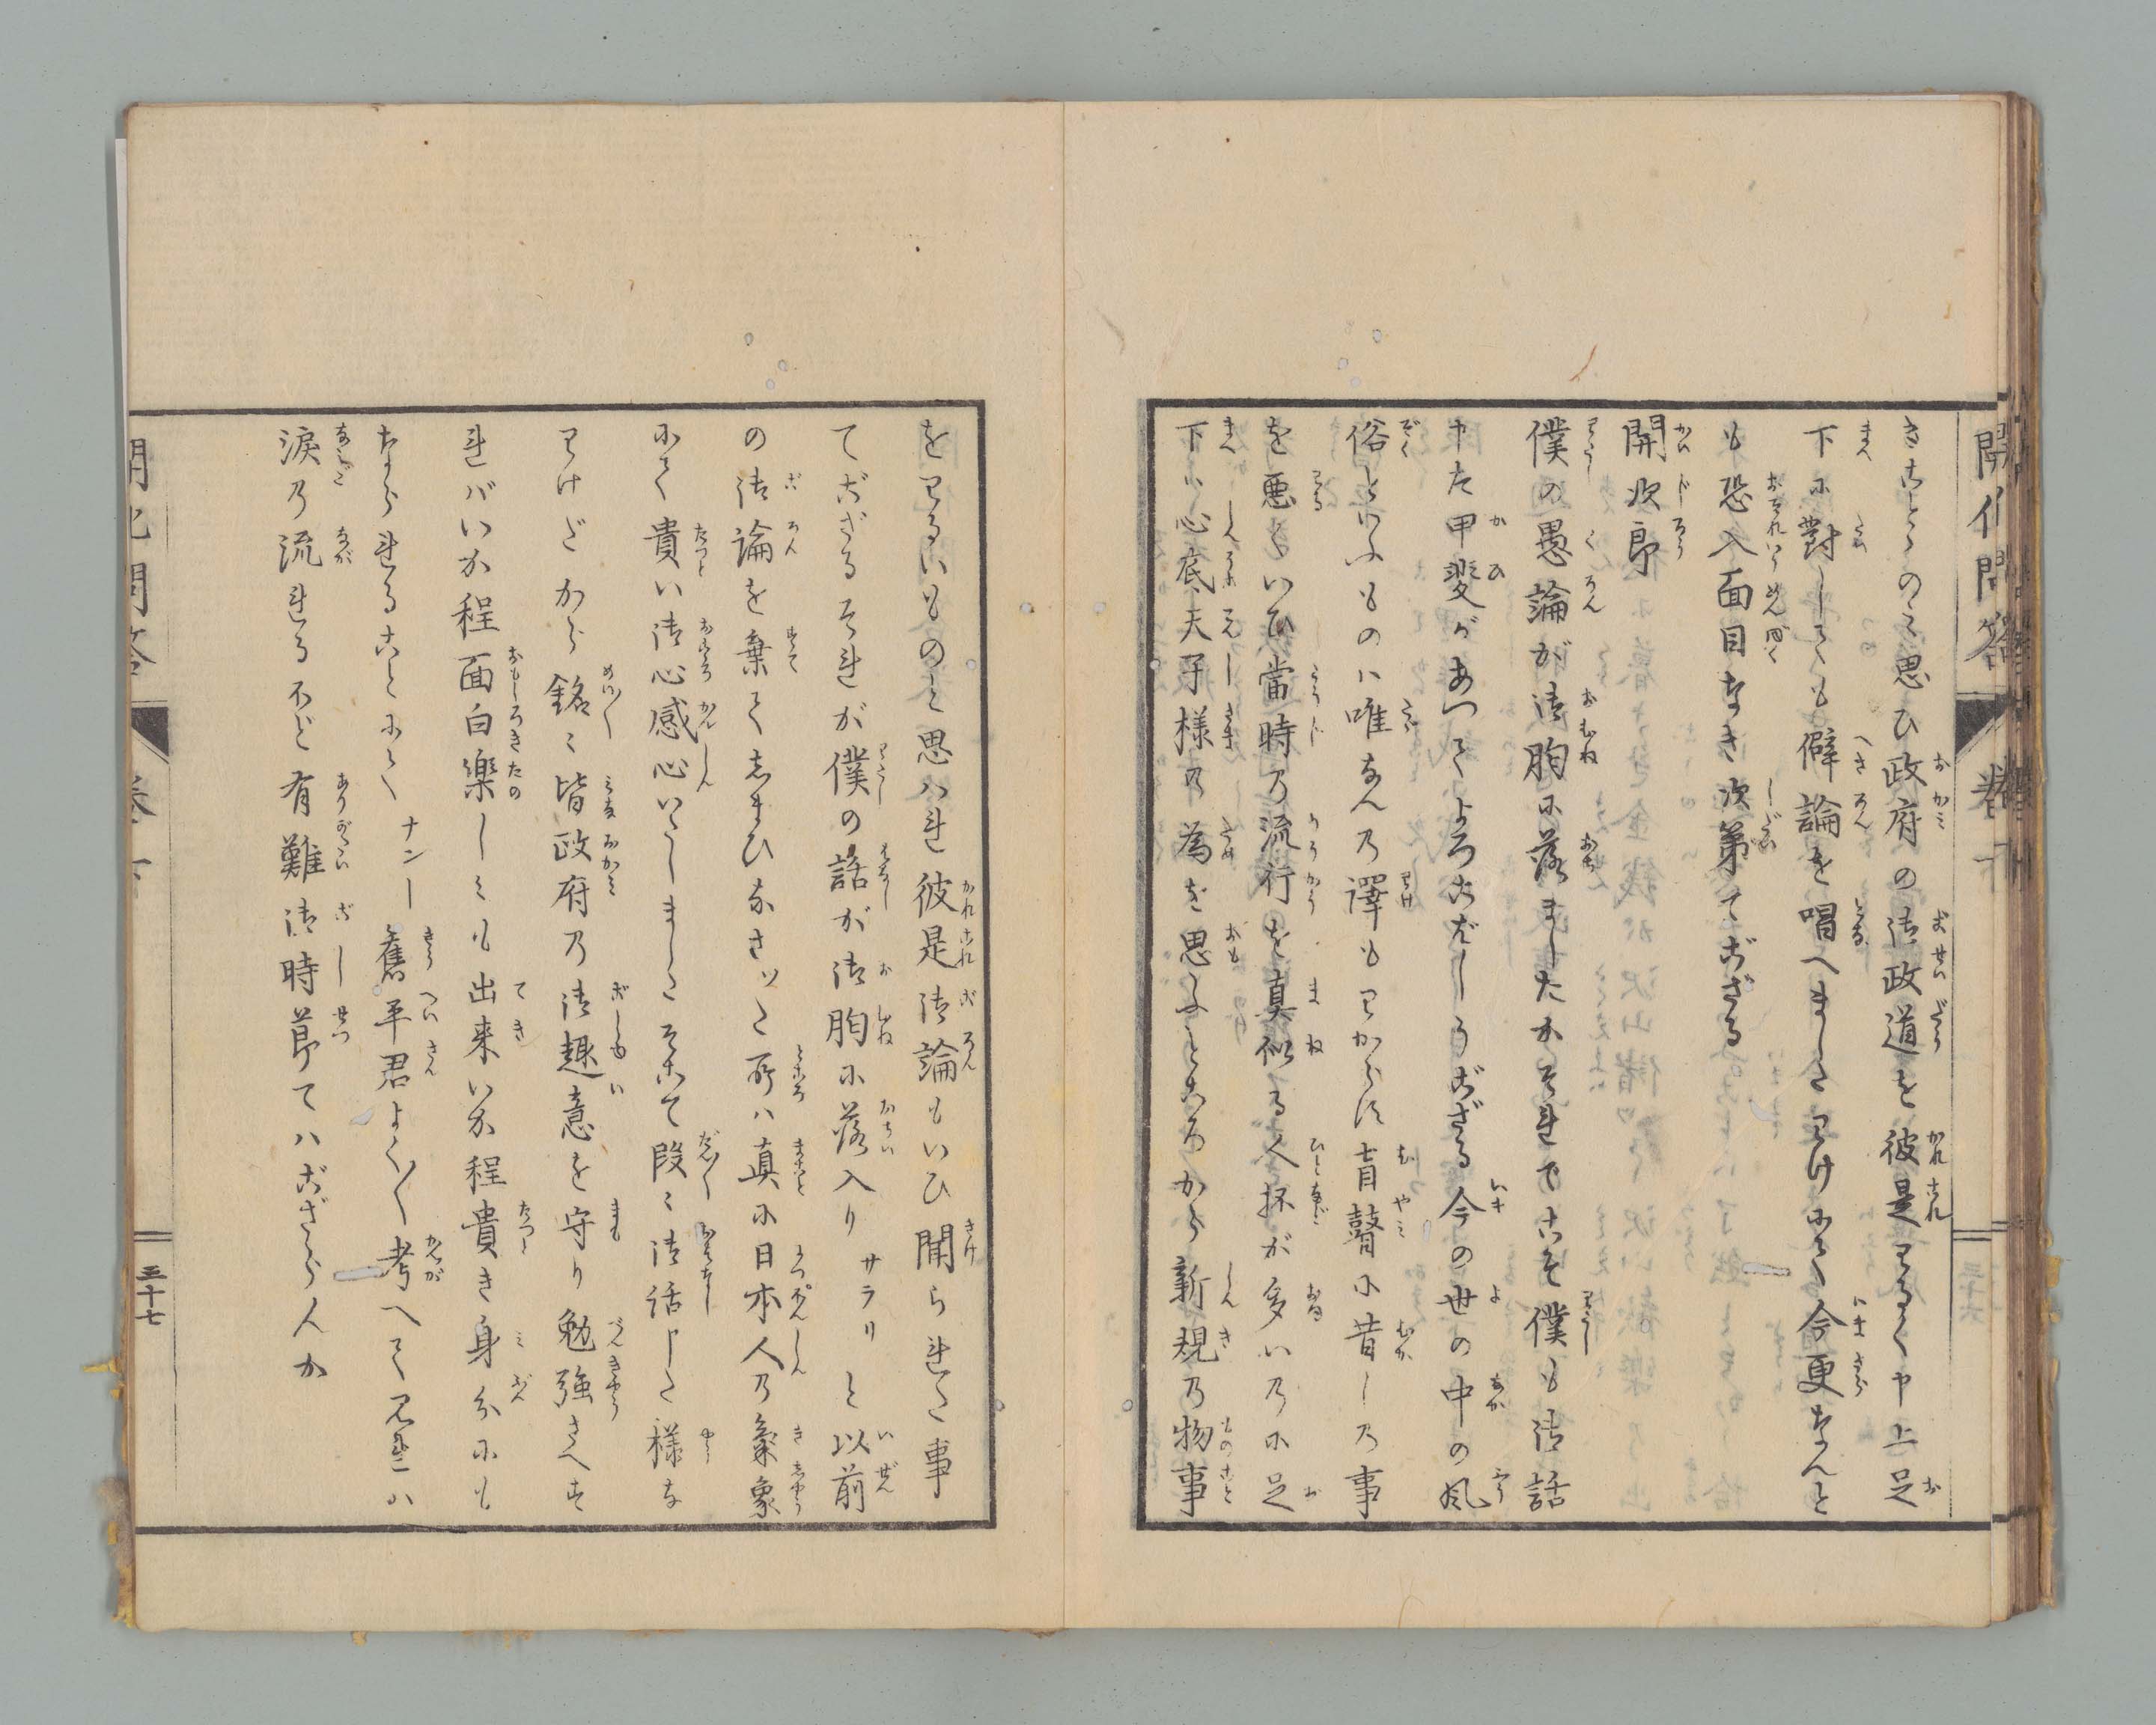 開化問答 巻下
きことゝのミ思ひ政府の御政道を彼是わるく申上足
下に對しても僻論を唱へましたわけにて今更なんと
も恐入面目なき次第でござる
開次郎
僕の愚論が御胸に落ましたかそれでこそ僕も御話
申た甲斐があつてよろこばしうござる今の世の中の風
俗といふものハ唯なんの譯もわからに盲瞽に昔しの事
を悪くいひ當時の流行を真似る人抔が多いのに足
下ハ心底天子様の為を思ふところから新規の物事
をわるいものと思ハれ彼是御論もいひ開られた事
でござるそれが僕の話が御胸に落入りサラリと以前
の御論を棄てしまひなさツた所ハ真に日本人の氣象
にて貴い御心感心いたしましたそこで段〻御話申た様な
わけだから銘〻皆政府の御趣意を守り勉強さへす
れバいか程面白樂しミも出来いか程貴き身分にも
なられることにてナント舊平君よく〳〵考へて見れハ
淚の流れるほど有難御時節てハござらんか
開化問答 巻下
三十七